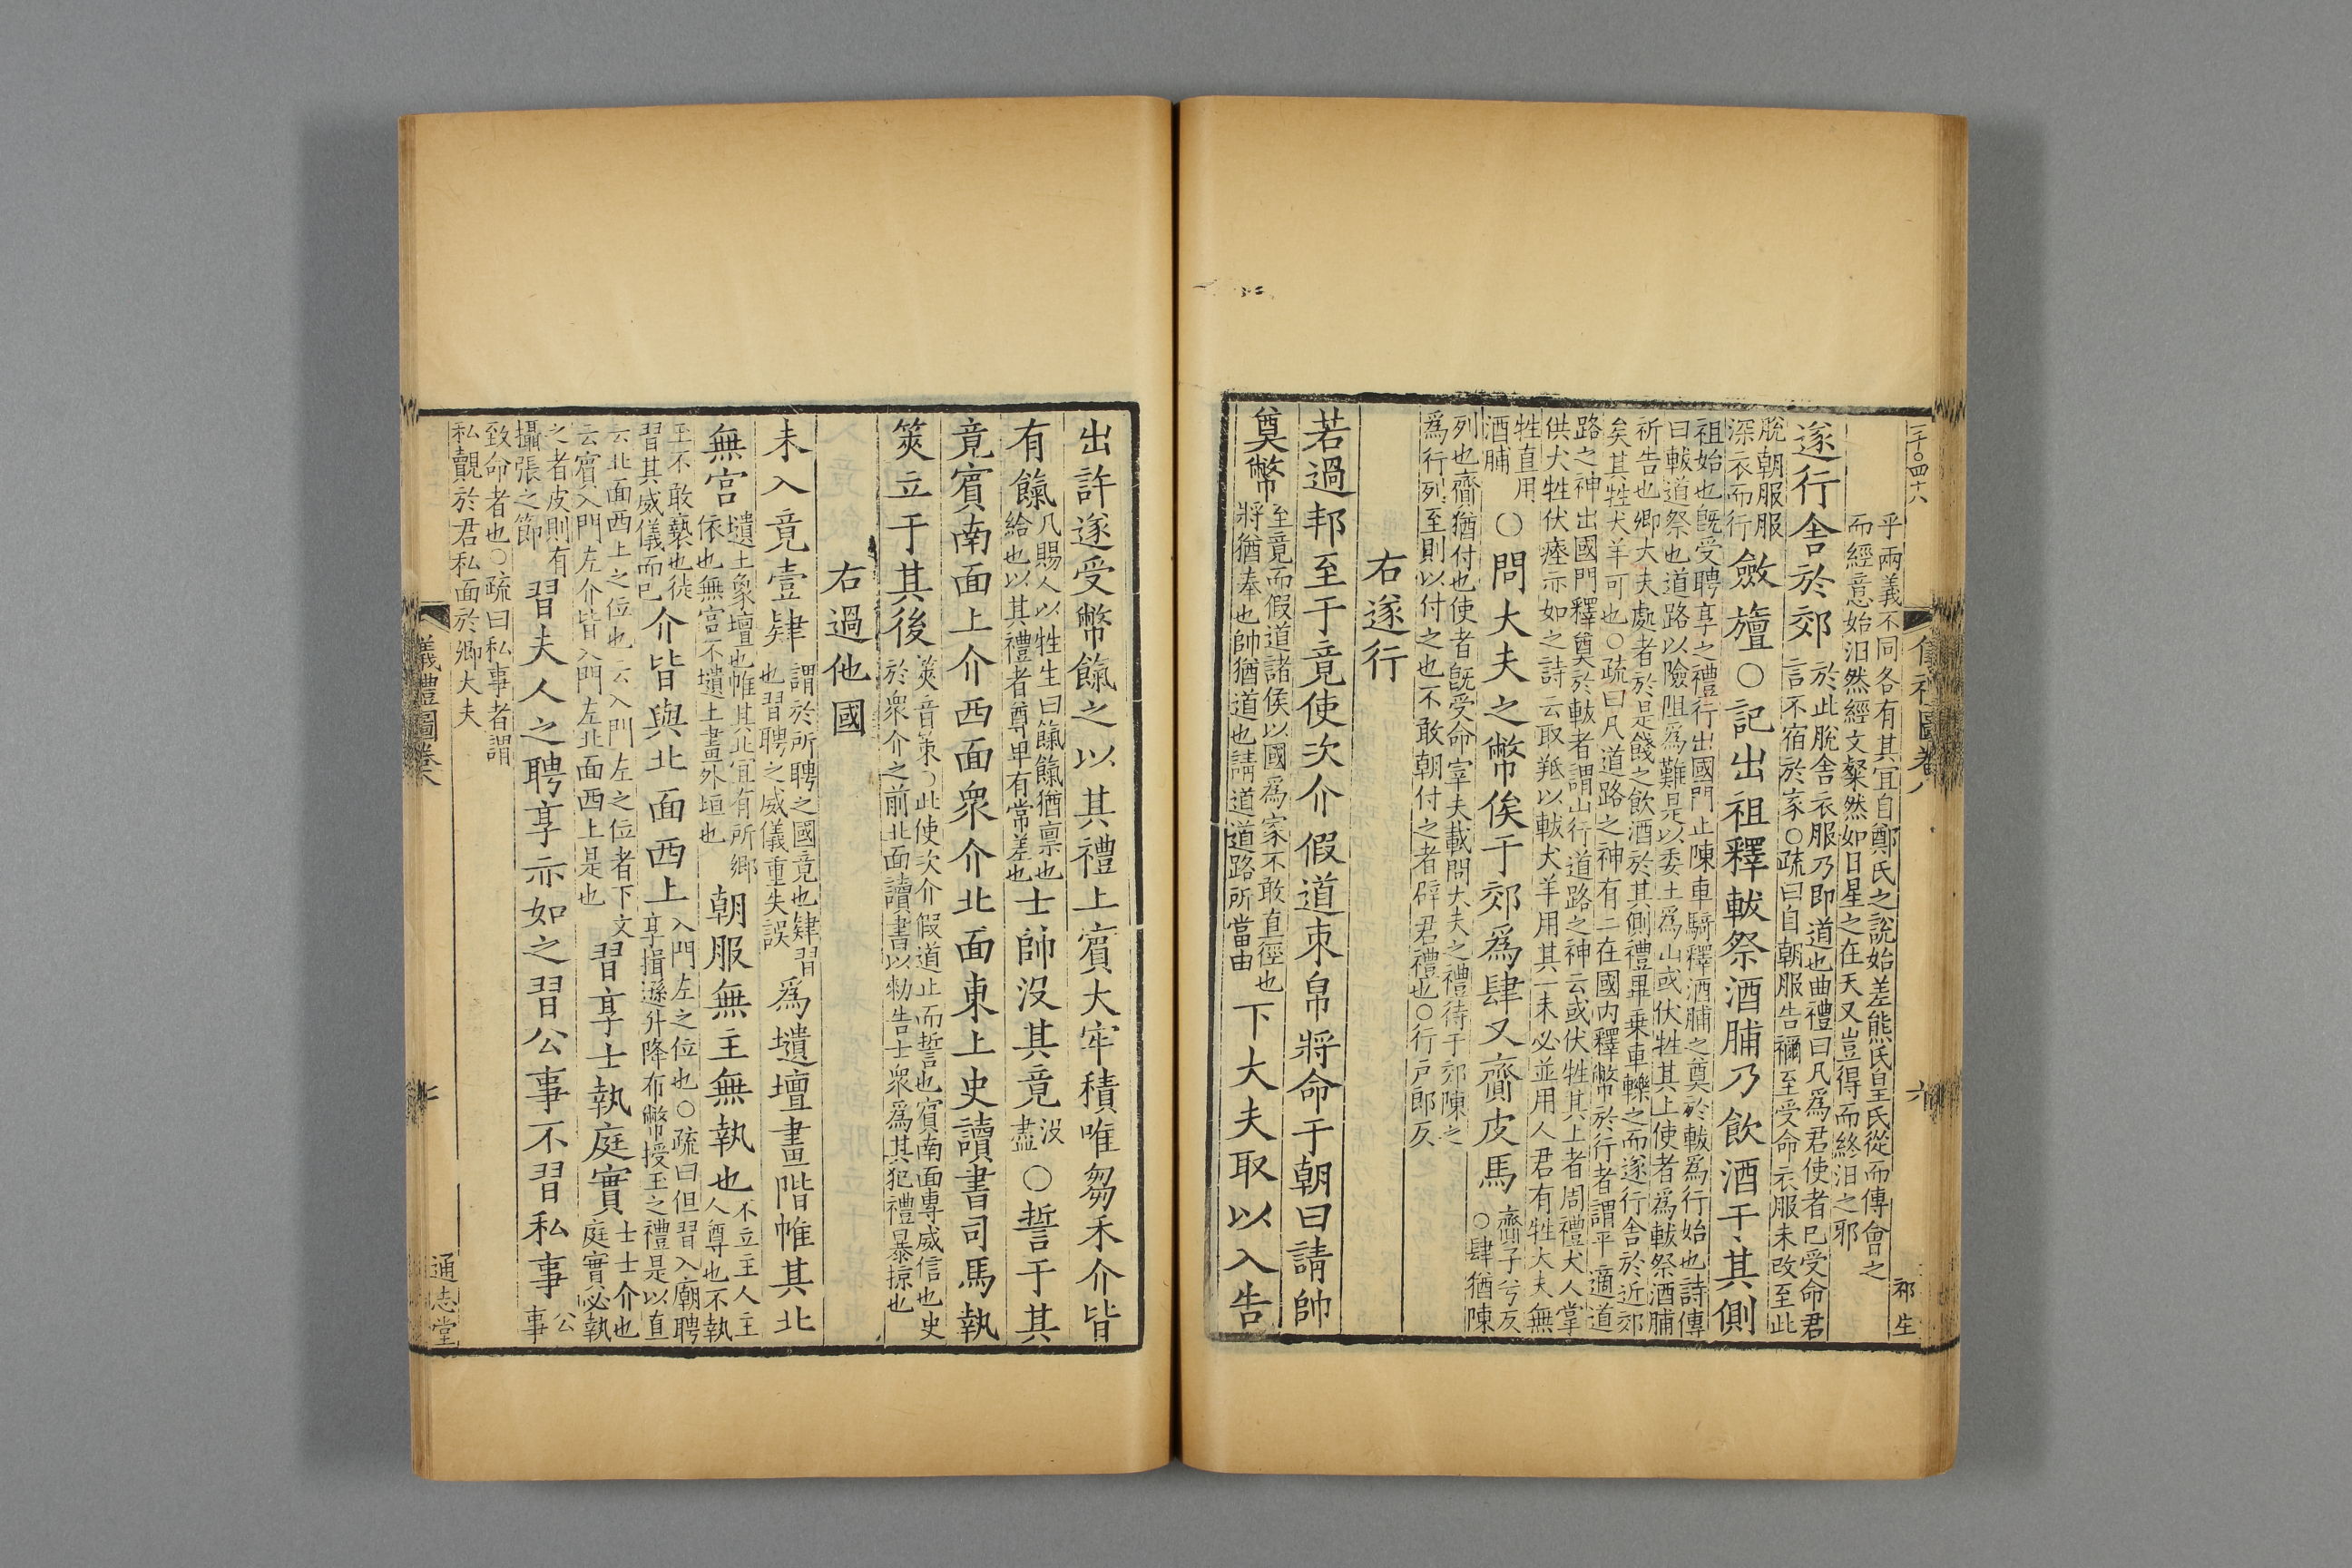 二千〇四十八
儀禮圖卷八
六
祁生
乎兩義不同各有其宜自鄭氏之說始差熊氏皇氏從而傳會之
而經意始汨然經文粲然如日星之在天又豈得而終汨之邪
遂行舍於郊於此脫舍衣服乃即道也曲禮曰凡爲君使者已受命君
言不宿於家○疏曰自朝服告禰至受命衣服未改至此
脫朝服服
深衣而行斂旜○記出祖釋軷祭酒脯乃飲酒于其側
祖始也既受聘享之禮行出國門止陳車騎釋酒脯之奠於軷爲行始也詩傳
曰軷道祭也道路以險阻爲難是以委土爲山或伏牲其上使者爲軷祭酒脯
祈告也卿大夫處者於是餞之飲酒於其側禮畢乘車轢之而遂行舍於近郊
矣其牲犬羊可也○疏曰凡道路之神有二在國內釋幣於行者謂平適道
路之神出國門釋奠於軷者謂山行道路之神云或伏牲其上者周禮犬人掌
供犬牲伏瘞亦如之詩云取羝以軷犬羊用其一未必並用人君有牲大夫無
牲直用
酒脯○問大夫之幣俟于郊爲肆又齎皮馬齎子兮反
○肆猶陳
列也齎猶付也使者既受命宰夫載問大夫之禮待于郊陳之
爲行列至則以付之也不敢朝付之者辟君禮也○行戶郎反
右遂行
若過邦至于竟使次介假道束帛將命于朝曰請帥
奠幣至竟而假道諸侯以國爲家不敢直徑也
將猶奉也帥猶道也請道道路所當由下大夫取以入告
出許遂受幣餼之以其禮上賓大牢積唯芻禾介皆
有餼凡賜人以牲生曰餼餼猶稟也
給也以其禮者尊卑有常差也士帥沒其竟沒
盡○誓于其
竟賓南面上介西面眾介北面東上史讀書司馬執
筴立于其後筴音策○此使次介假道止而誓也賓南面專威信也史
於眾介之前北面讀書以勑告士眾爲其犯禮暴掠也
右過他國
未入竟壹肄謂於所聘之國竟也肄習
也習聘之威儀重失誤爲壝壇畫階帷其北
無宮壝土象壇也帷其北宜有所鄉
依也無宮不壝土畫外垣也朝服無主無執也不立主人主
人尊也不執
玉不敢褻也徒
習其威儀而已介皆與北面西上入門左之位也○疏曰但習入廟聘
享揖遜升降布幣授玉之禮是以直
云北面西上之位也云入門左之位者下文
云賓入門左介皆入門左北面西上是也習享士執庭實士士介也
庭實必執
之者皮則有
攝張之節習夫人之聘享亦如之習公事不習私事公
事
致命者也○疏曰私事者謂
私覿於君私面於卿大夫
儀禮圖卷八
七
通志堂